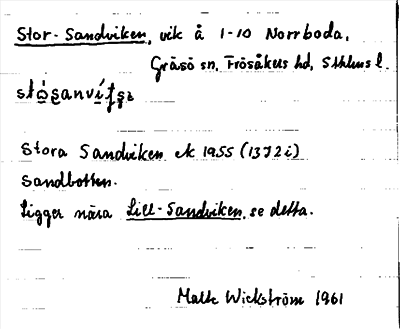 Stor-Sandviken, vik å 1-10 Norrboda,
Gräsö sn, Frösåkers hd, Sthlms l.
Stora Sandviken ek 1955 (13J2i)
Sandbotten.
Ligger nära Lill-Sandviken, se detta.
Malte Wickström 1961